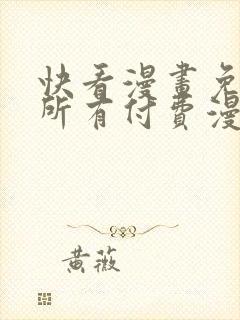 快看漫畫免
所有付費漫
黃薇